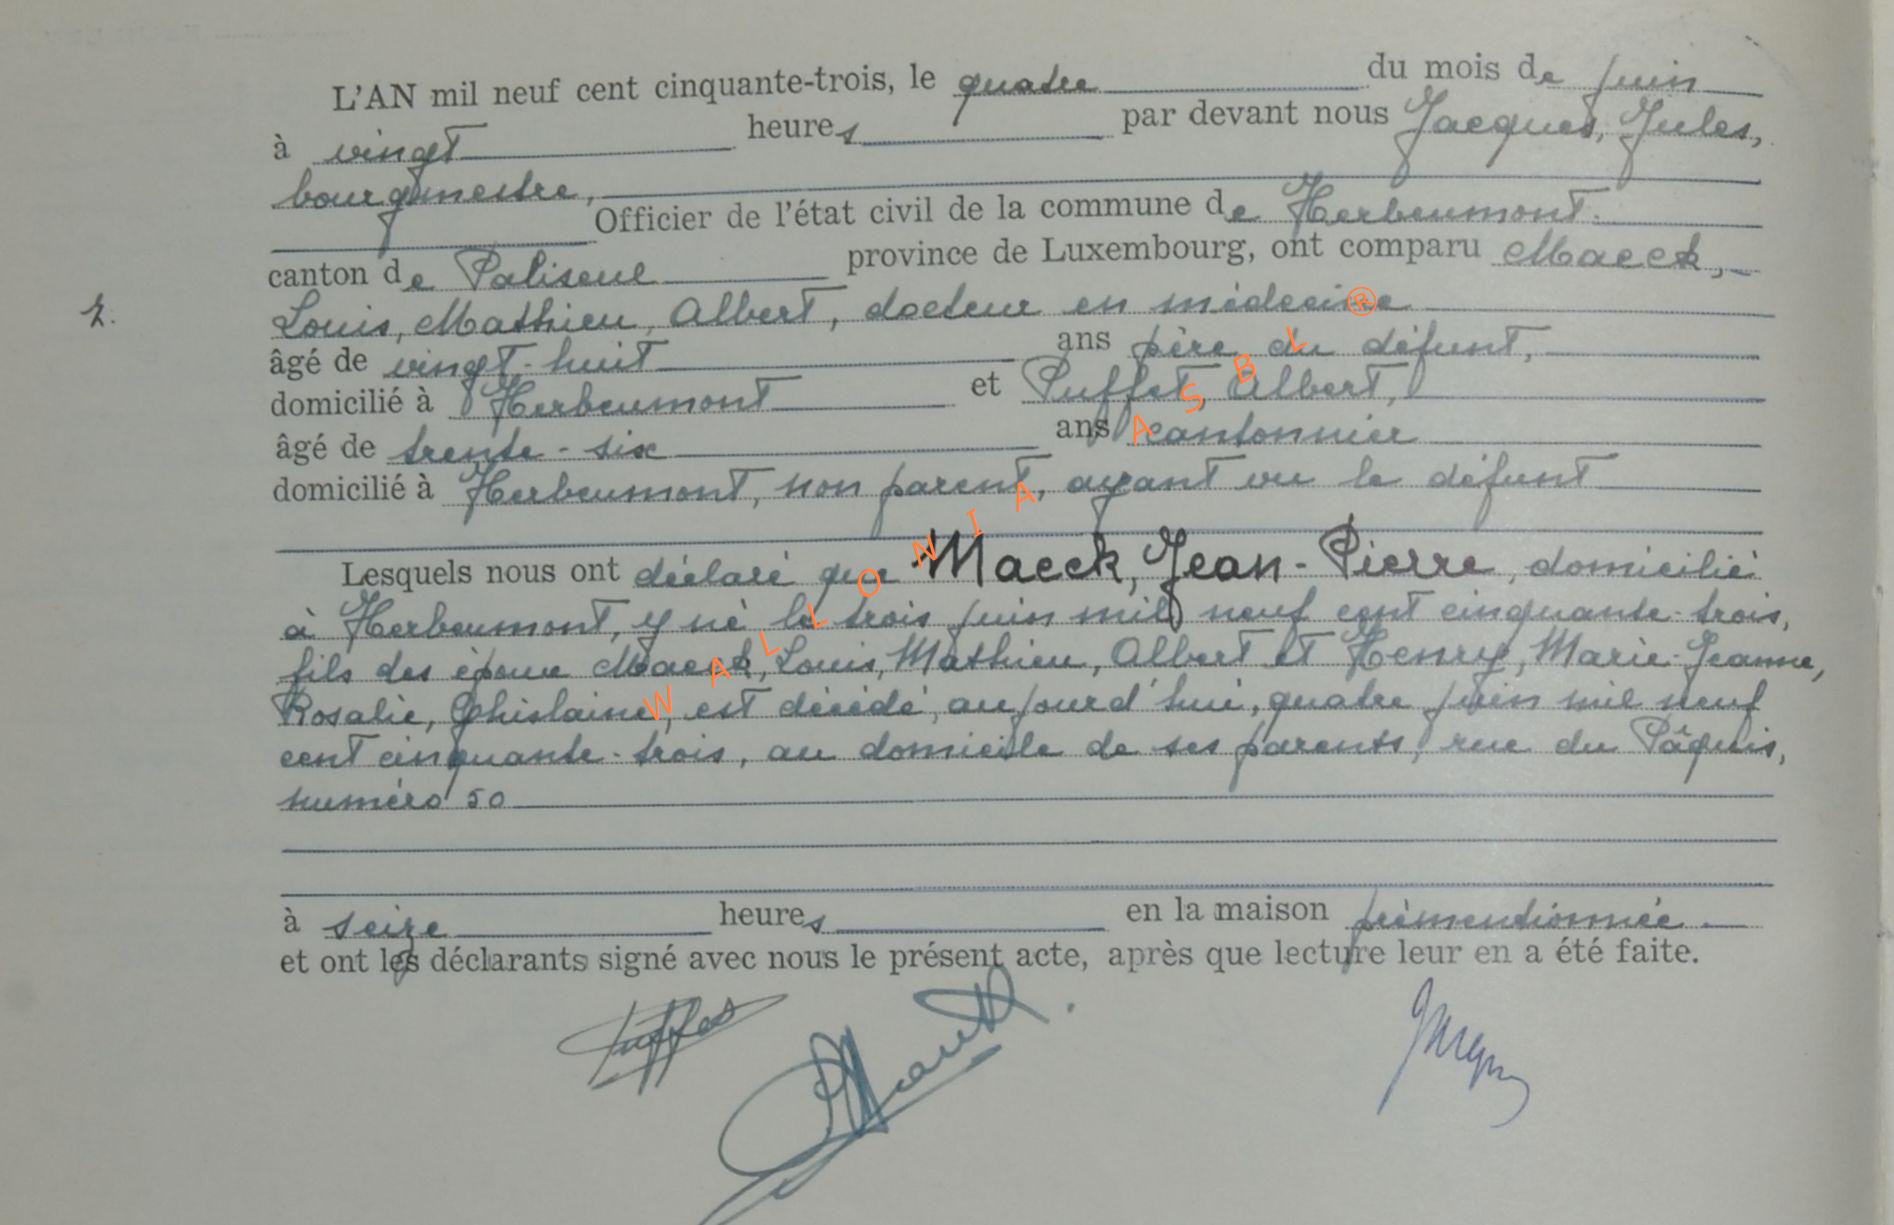 L'AN mil neuf cent cinquante-trois, le quatre du mois de juin
à vingt heures par devant nous Jacques, Jules,
bourgmestre,
Officier de l'état civil de la commune de Herbeumont.
canton de Paliseul province de Luxembourg, ont comparu Maeck,
2.
Louis, Mathieu, Albert, docteur en médecine
âgé de vingt-huit ans père du défunt,
domicilié à Herbeumont et Puffet, Albert,
âgé de trente-six ans cantonnier
domicilié à Herbeumont, non parent, ayant vu le défunt
Lesquels nous ont déclaré que Maeck, Jean-Pierre, domicilié
à Herbeumont, y né le trois juin mil neuf cent cinquante-trois,
fils des époux Maeck, Louis, Mathieu, Albert et Henry, Marie-Jeanne,
Rosalie, Ghislaine, est décédé, aujourd'hui, quatre juin mil neuf
cent cinquante-trois, au domicile de ses parents, rue du Pâquis,
numéro 50
à seize heures en la maison prémentionnée
et ont les déclarants signé avec nous le présent acte, après que lecture leur en a été faite.
WALLONIA ASBL ®